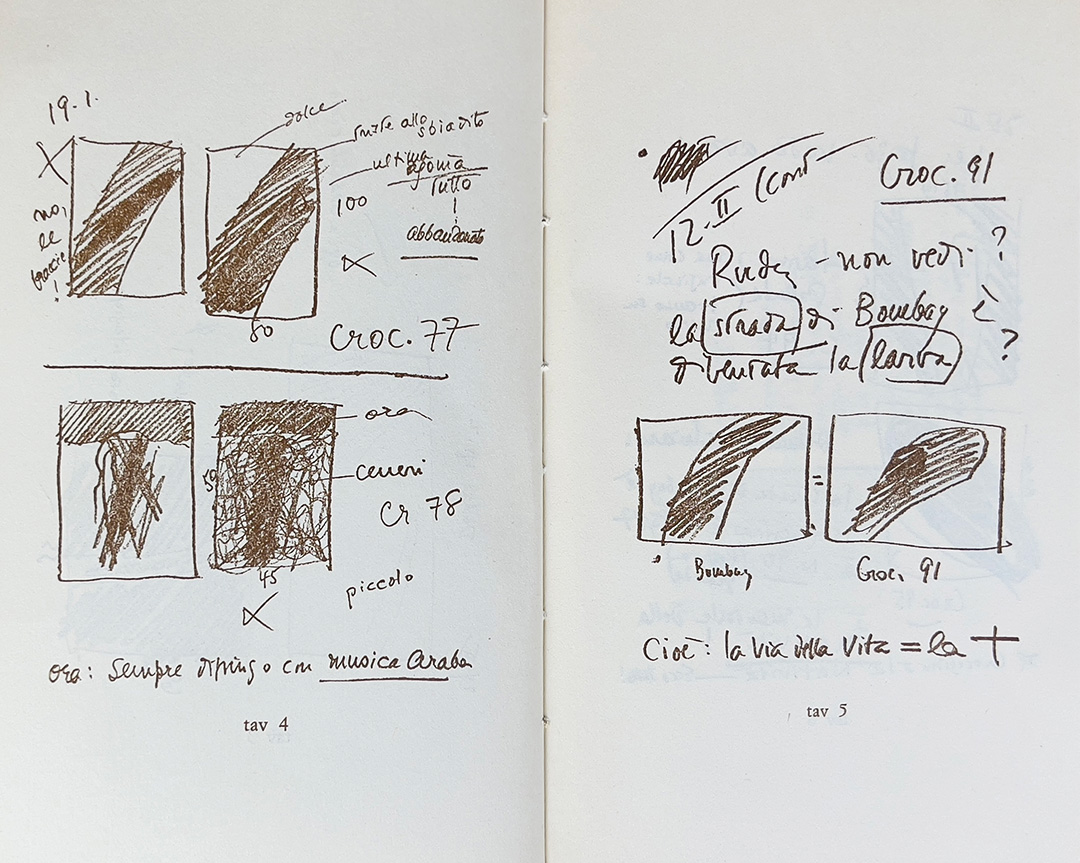 19.1.
dolce
sfnre allo sbiadito
ultima agonia
Tutto
abbandonato
100
no,
le
braccie
!
80
Croc. 77
ora
ceneri
50
Cr 78
45
piccolo
ora: sempre dipingo con musica araba
tav 4
12-II (cont
Croc. 91
Rudy - non vedi?
la strada di Bombay è
diventata la larva ?
=
Bombay
Croc. 91
Cioè: la via della Vita = la +
tav 5